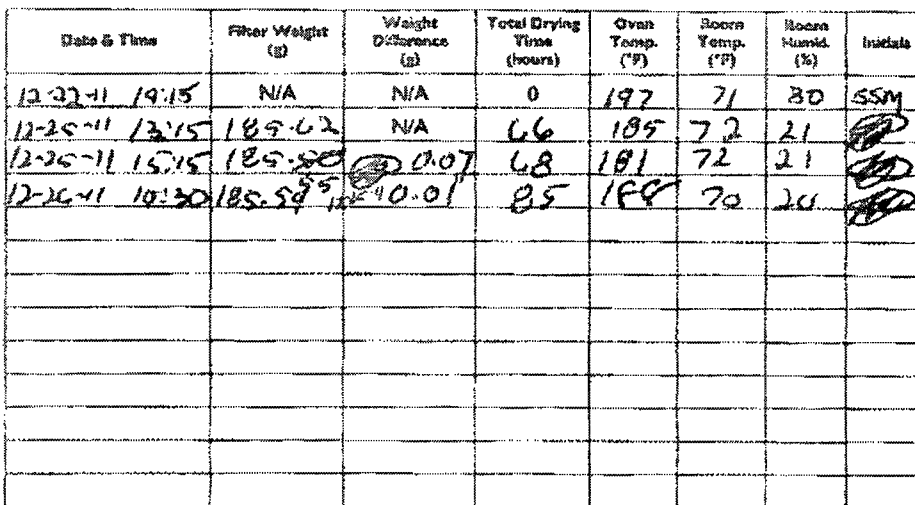 Date & Time Filter Weight (g) Weight Difference (g) Total Drying Time (hours) Oven Temp. (°F) Room Temp. (°F) Room Humid. (%) Initials
12-22-11 19:15 N/A N/A 0 197 71 30 SSM
12-25-11 13:15 185.62 N/A 66 185 72 21
12-25-11 15:15 185. 0.07 68 181 72 21
12-26-11 10:30 185. 0.01 85 188 70 20